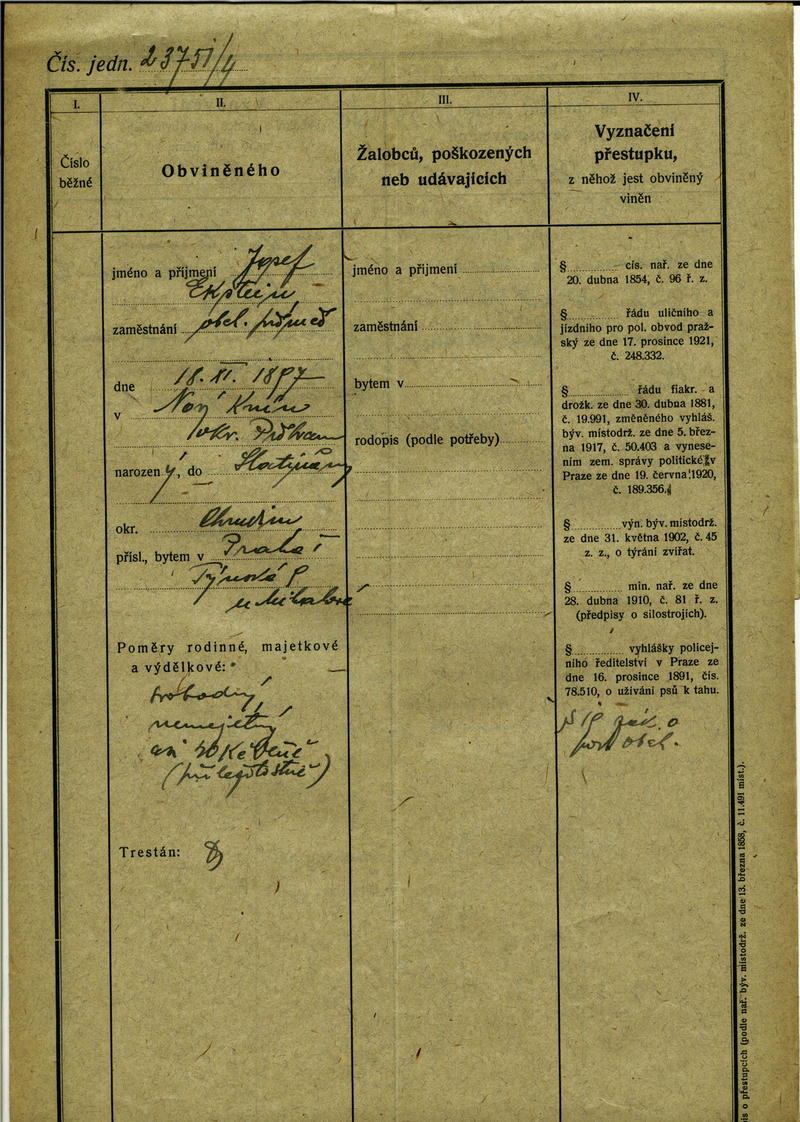 Čís. jedn. 23751/4
I.
II.
III.
IV.
Číslo
běžné
Obviněného
Žalobců, poškozených
neb udávajících
Vyznačení
přestupku,
z něhož jest obviněný
viněn
jméno a příjmení Josef
Ekstein
zaměstnání obch.
dne 18. XI. 1897
v Nový Knín
okr. Příbram
narozen ý, do Slatiňany
okr. Chrudim
přísl., bytem v Praha I
Týnská
Poměry rodinné, majetkové
a výdělkové:
svobodný
nemajetný
30 Kč denně
(příležitostně)
Trestán:
jméno a přijmení
zaměstnání
bytem v
rodopis (podle potřeby)
§ cís. nař. ze dne
20. dubna 1854, č. 96 ř. z.
§ řádu uličního a
jízdního pro pol. obvod praž-
ský ze dne 17. prosince 1921,
č. 248.332.
§ řádu fiakr. a
drožk. ze dne 30. dubna 1881,
č. 19.991, změněného vyhláš.
býv. místodrž. ze dne 5. břez-
na 1917, č. 50.403 a vynese-
ním zem. správy politické v
Praze ze dne 19. června 1920,
č. 189.356.
§ výn. býv. místodrž.
ze dne 31. května 1902, č. 45
z. z., o týrání zvířat.
§ min. nař. ze dne
28. dubna 1910, č. 81 ř. z.
(předpisy o silostrojích).
§ vyhlášky policej-
ního ředitelství v Praze ze
dne 16. prosince 1891, čís.
78.510, o užívání psů k tahu.
zák. o
obch.
is o přestupcích (podle nař. býv. místodrž. ze dne 13. března 1858, č. 11.491 míst.).